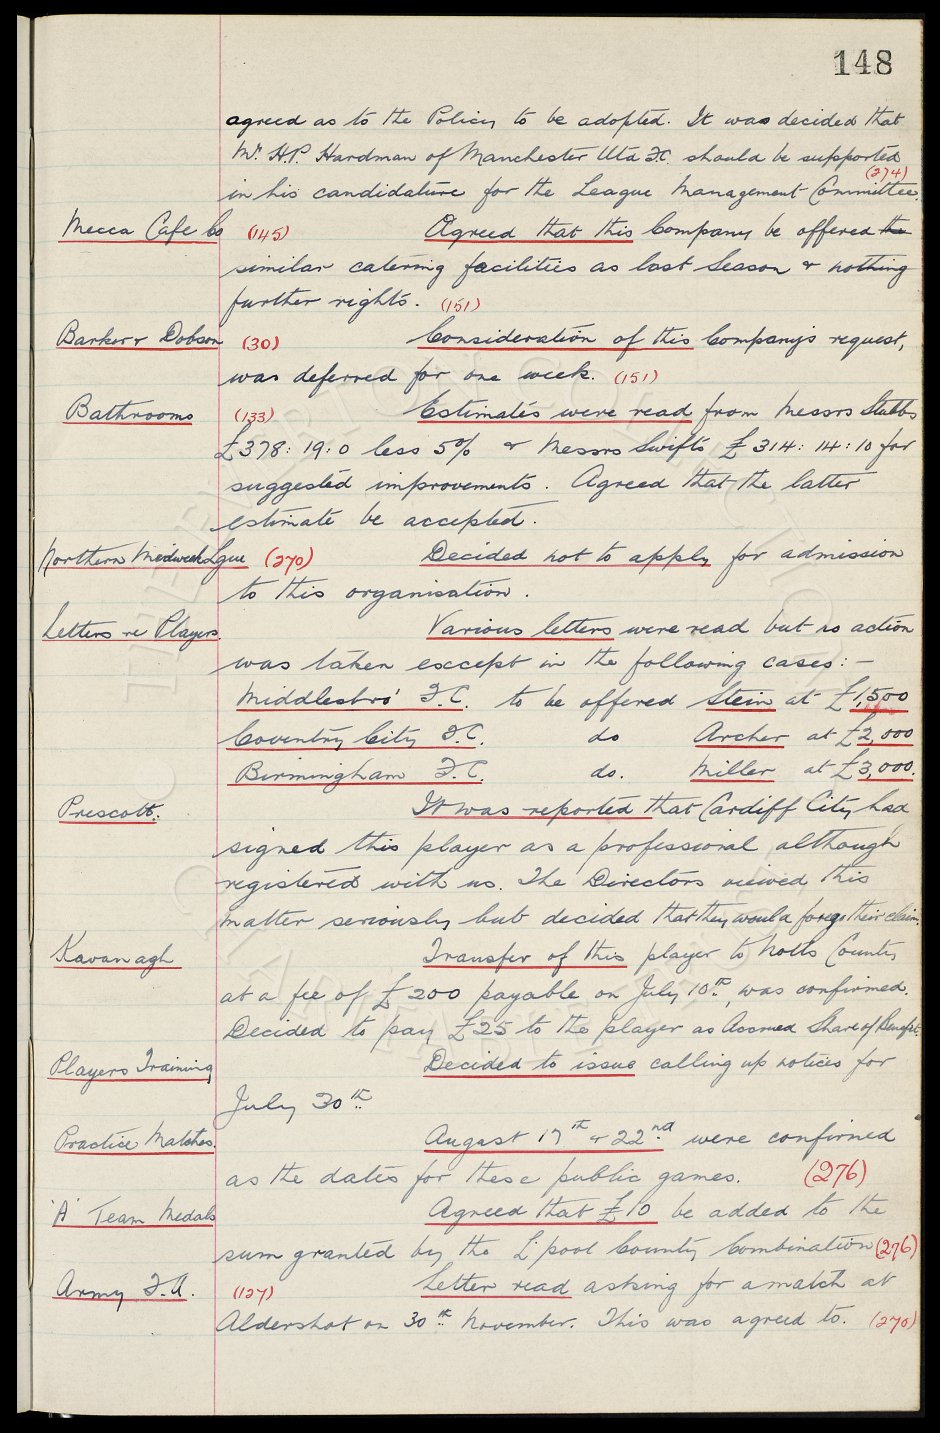 148
agreed as to the Policy to be adopted. It was decided that
Mr. H.P. Hardman of Manchester Utd F.C. should be supported
(274)
in his candidature for the League Management Committee.
Mecca Cafe Co (145) Agreed that this Company be offered the
similar catering facilities as last Season & nothing
further rights. (151)
Barker & Dobson (30) Consideration of this Company's request,
was deferred for one week. (151)
Bathrooms (133) Estimates were read from Messrs Stubbs
£378:19:0 less 5% & Messrs Swifts £314:14:10 for
suggested improvements. Agreed that the latter
estimate be accepted.
Northern Midweek Lgue (270) Decided not to apply for admission
to this organisation.
Letters re Players. Various letters were read but no action
was taken except in the following cases:-
Middlesbro' F.C. to be offered Stein at £1,500
Coventry City F.C. do Archer at £2,000
Birmingham F.C. do. Miller at £3,000.
Prescott. It was reported that Cardiff City had
signed this player as a professional although
registered with us. The Directors viewed this
matter seriously but decided that they would forego their claim.
Kavanagh Transfer of this player to Notts County
at a fee of £200 payable on July 10th, was confirmed.
Decided to pay £25 to the player as Accrued Share of Benefit.
Players Training Decided to issue calling up notices for
July 30th.
Practice Matches. August 17th & 22nd were confirmed
as the dates for these public games. (276)
'A' Team Medals Agreed that £10 be added to the
sum granted by the L'pool County Combination (276)
Army F.A. (127) Letter read asking for a match at
Aldershot on 30th November. This was agreed to. (270)